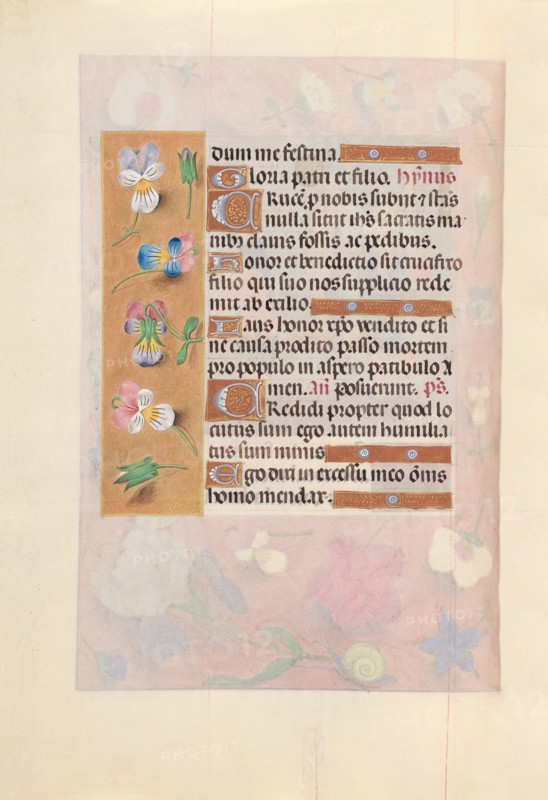 dum me festina.
Gloria patri et filio. hỹnus
Qui cruce p nobis subiit ⁊ stās
nulla sitiit ihs sacratis ma
nibꝫ clavis fossis ac pedibus.
Honor et benedictio sit crucifixo
filio qui suo nos supplicio rede
mit ab exilio.
Laus honor xp̄o vendito et si
ne causa prodito passo mortem
pro populo in aspero patibulo A
men. añ posuerunt. p̄s.
Credidi propter quod lo
cutus sum ego autem humilia
tus sum nimis
Ego dixi in excessu meo ōmis
homo mendax.
PHOTO12